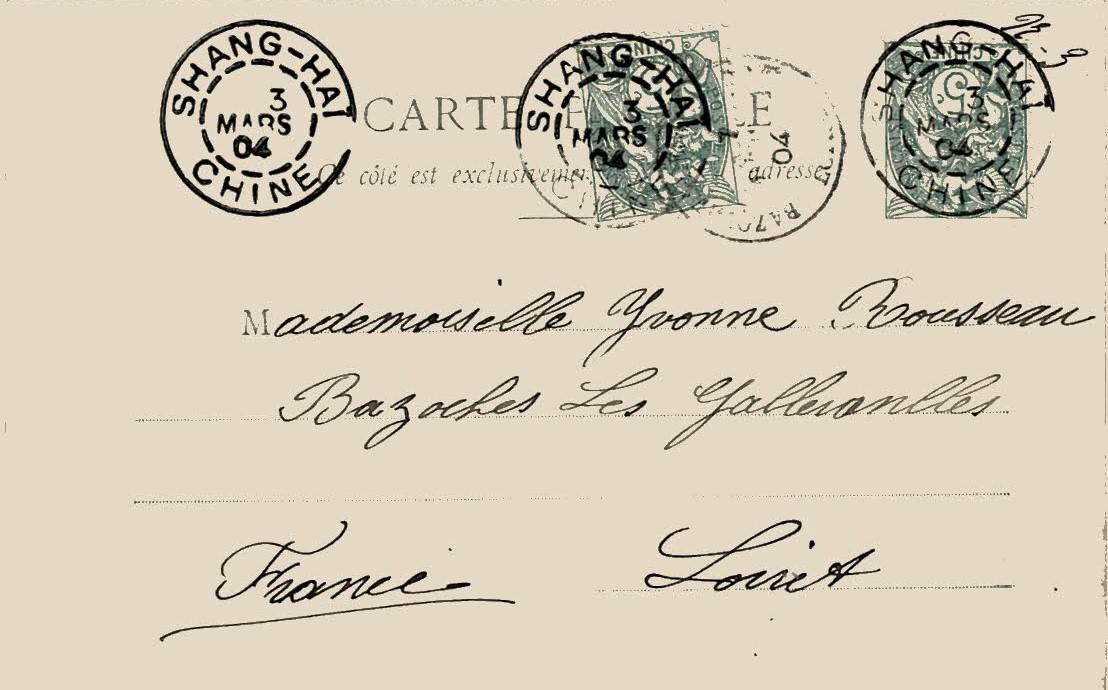 SHANG-HAI
3
MARS
04
CHINE
SHANG-HAI
3
MARS
04
SHANG-HAI
3
MARS
04
CHINE
CHINE
5
04
CARTE
Ce côté est exclusivement adresse
Mademoiselle Yvonne Rousseau
Bazoches Les Gallerandles
France Loiret